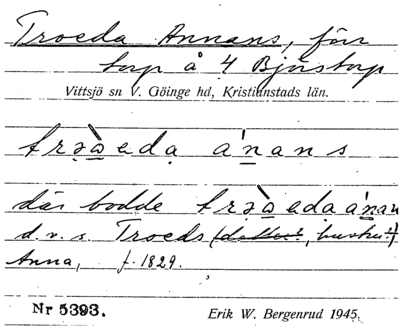 Troeda Annans, för
torp å 4 Bjärstorp
Vittsjö sn V. Göinge hd, Kristianstads län.
trə̀aeda ánans
där bodde trə̀aeda ánan
d. v. s. Troeds (dotter?, hustru?)
Anna, f. 1829.
Nr 5393. Erik W. Bergenrud 1945.